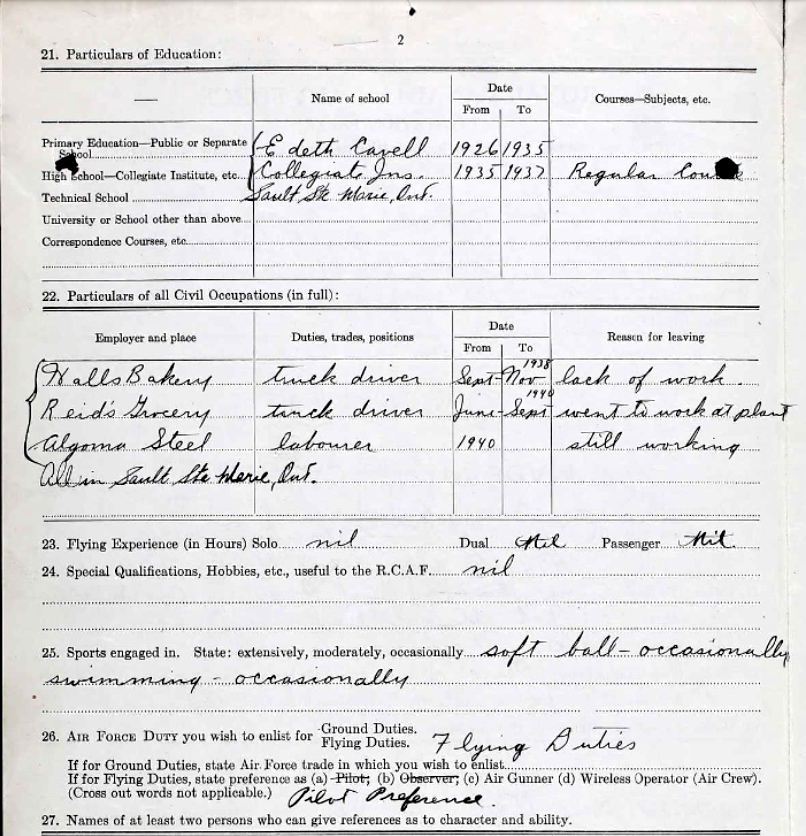 2
21. Particulars of Education:
Name of school
Date
From To
Courses—Subjects, etc.
Primary Education—Public or Separate School
Edeth Cavell 1926 1935
High School—Collegiate Institute, etc.
Collegiate Ins. 1935 1937 Regular
Technical School
Sault Ste Marie, Ont.
University or School other than above
Correspondence Courses, etc.
22. Particulars of all Civil Occupations (in full):
Employer and place
Duties, trades, positions
Date
From To
Reason for leaving
Walls Bakery truck driver Sept- Nov 1938 lack of work.
Reid's Grocery truck driver June- Sept 1940 went to work at plant
Algoma Steel labourer 1940 still working
All in Sault Ste Marie, Ont.
23. Flying Experience (in Hours) Solo nil Dual Nil Passenger Nil.
24. Special Qualifications, Hobbies, etc., useful to the R.C.A.F. nil
25. Sports engaged in. State: extensively, moderately, occasionally soft ball - occasionally
swimming - occasionally
26. AIR FORCE DUTY you wish to enlist for Ground Duties.
Flying Duties. Flying Duties
If for Ground Duties, state Air Force trade in which you wish to enlist
If for Flying Duties, state preference as (a) Pilot; (b) Observer; (c) Air Gunner (d) Wireless Operator (Air Crew).
(Cross out words not applicable.) Pilot Preference.
27. Names of at least two persons who can give references as to character and ability.